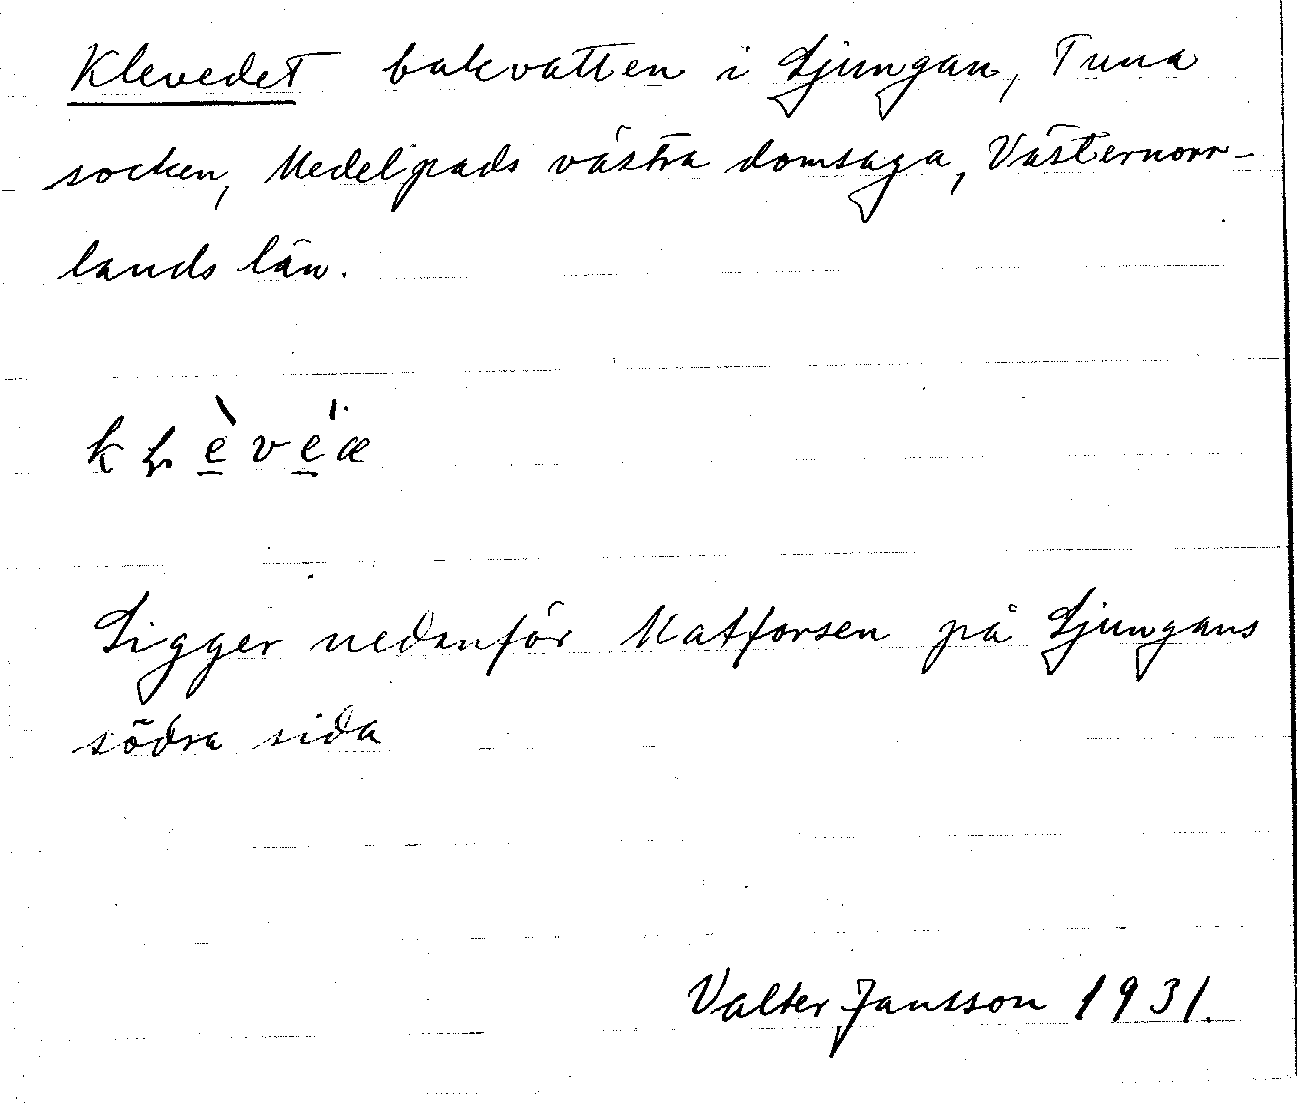 Klevedet bakvatten i Ljungan, Tuna
socken, Medelpads västra domsaga, Västernorr-
lands län.
Ligger nedanför Matforsen på Ljungans
södra sida
Valter Jansson 1931.